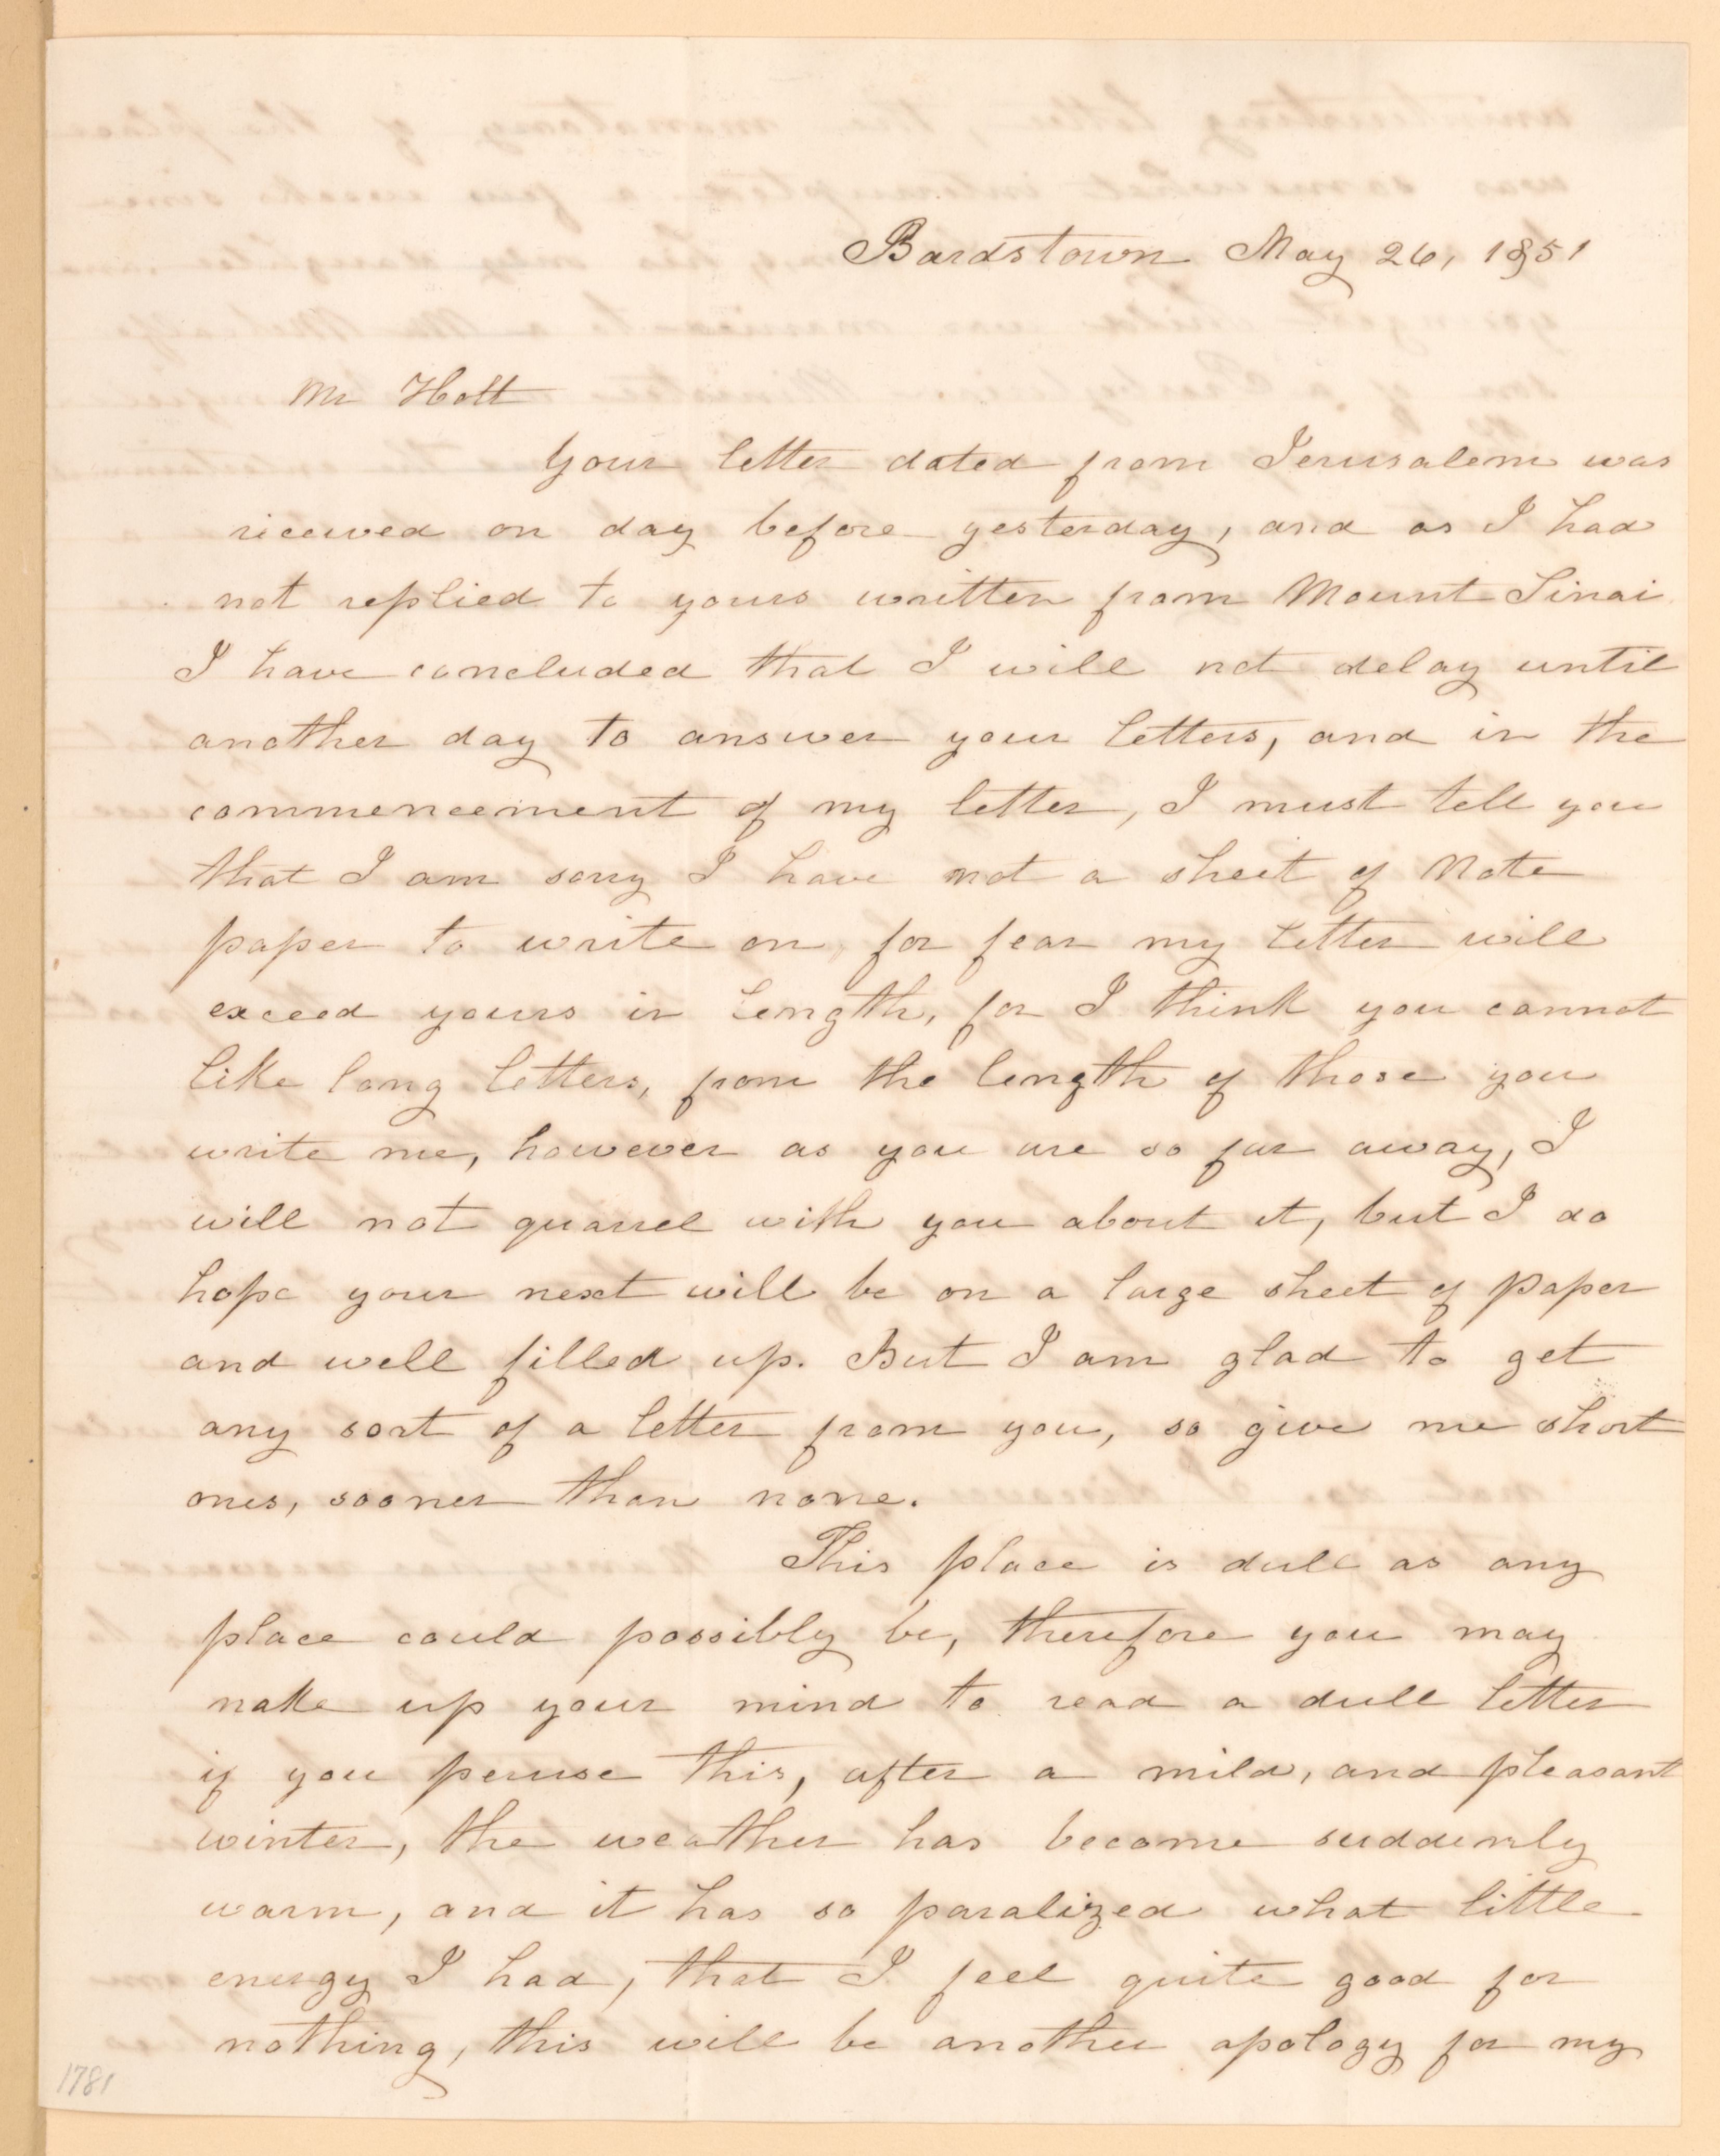 Bardstown May 26, 1851
Mr Holt
Your letter dated from Jerusalem was
received on day before yesterday, and as I had
not replied to yours written from Mount Sinai
I have concluded that I will not delay until
another day to answer your letters, and in the
commencement of my letter, I must tell you
that I am sorry I have not a sheet of Note
paper to write on, for fear my letter will
exceed yours in length, for I think you cannot
like long letters, from the length of those you
write me, however as you are so far away, I
will not quarrel with you about it, but I do
hope your next will be on a large sheet of paper
and well filled up. But I am glad to get
any sort of a letter from you, so give me short
ones, sooner than none.
This place is dull as any
place could possibly be, therefore you may
make up your mind to read a dull letter
if you peruse this, after a mild, and pleasant
winter, the weather has become suddenly
warm, and it has so paralized what little
energy I had, that I feel quite good for
nothing, this will be another apology for my
1781